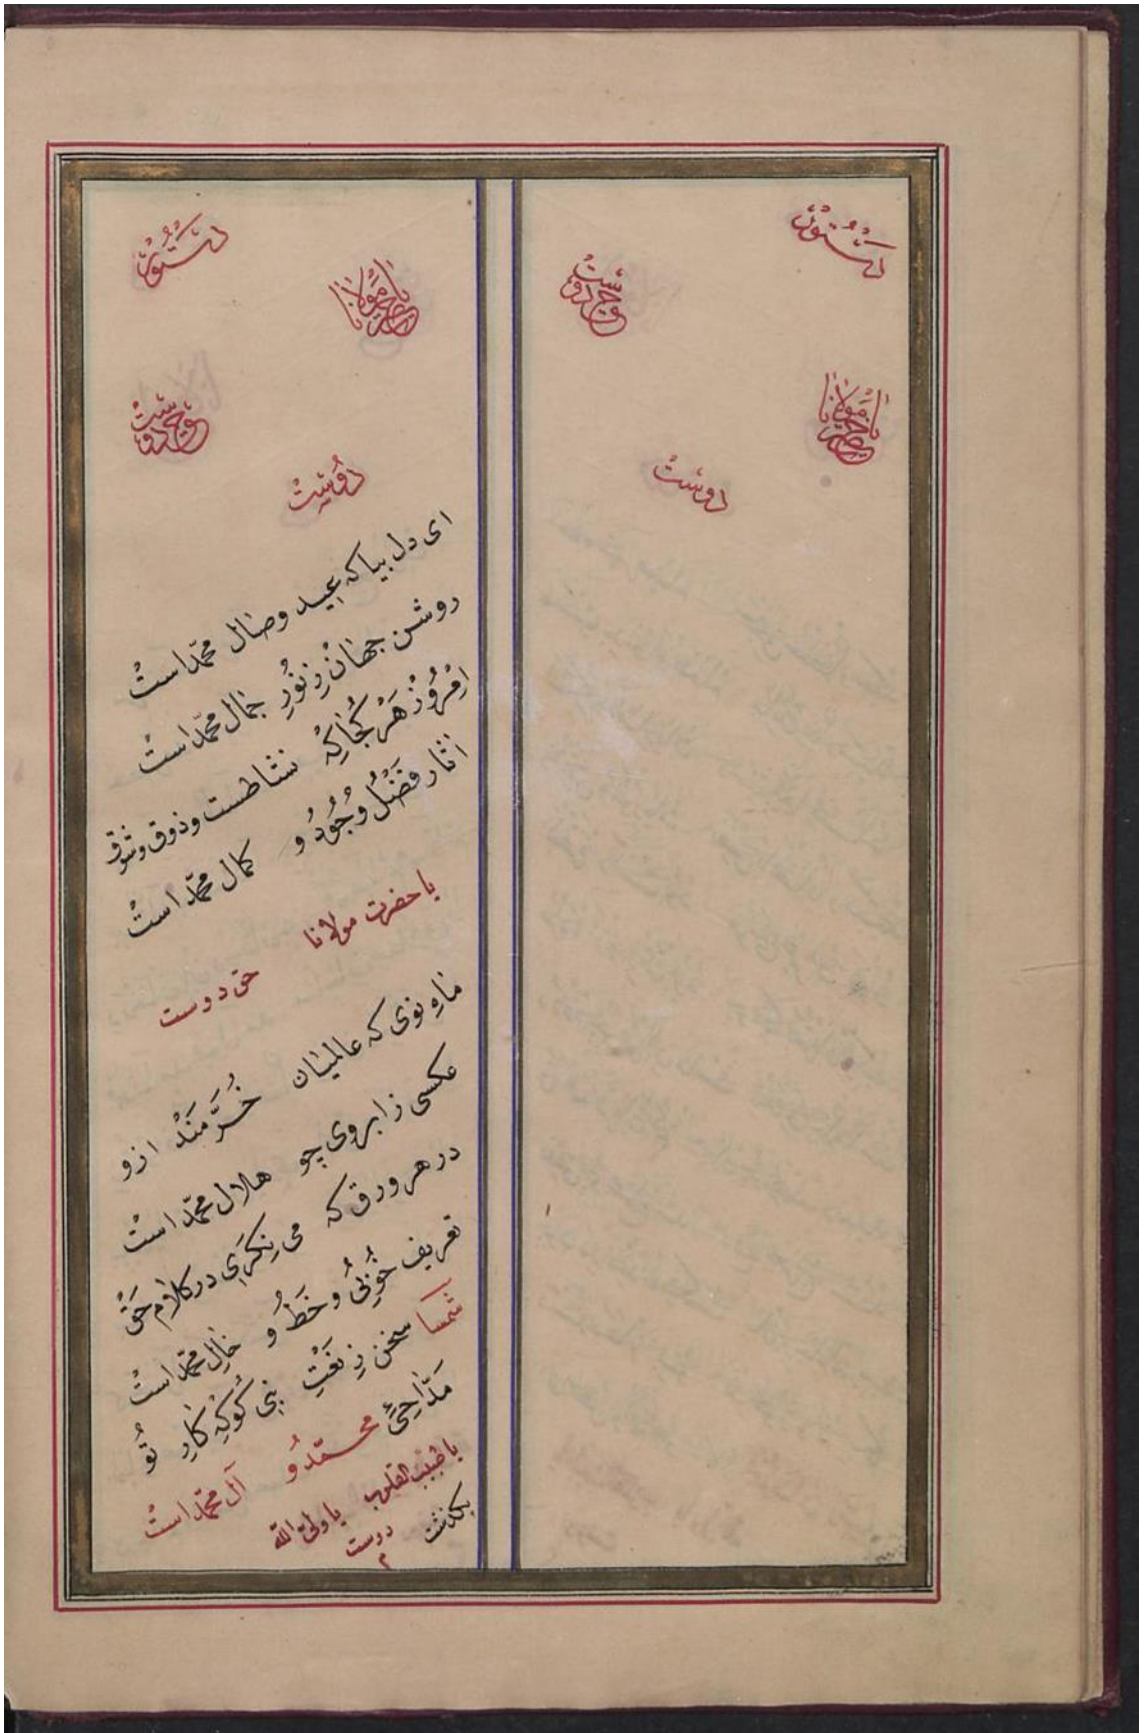 دستور
حق دوست
یا حضرت مولانا
دوست
دستور
یا حضرت مولانا
حق دوست
دوست
ای دل بیا که عید وصال محمّد است
روشن جهان ز نور جمال محمّد است
امروز هر کجا که نشاطست و ذوق و شوق
آثار فضل و جود و کمال محمّد است
یا حضرت مولانا
حق دوست
ماه نوی که عالمیان خرّمند ازو
عکسی ز ابروی چو هلال محمّد است
در هر ورق که می نکری در کلام حق
تعریف خوبی و خط و خال محمّد است
شمسا سخن ز نعت نبی کو که کار تو
مدّاحیٔ محمّد و آل محمّد است
یا طبیب القلوب یا ولی الله
دوست
بکذشت